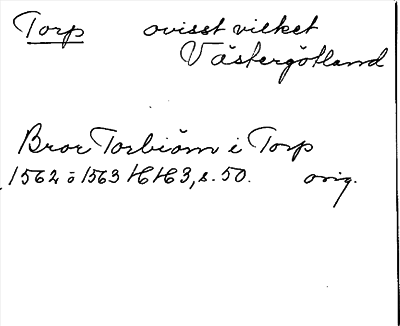 Torp ovisst vilket
Västergötland
Bror Torbiörn i Torp
1562 o 1563 HH3, s. 50. orig.